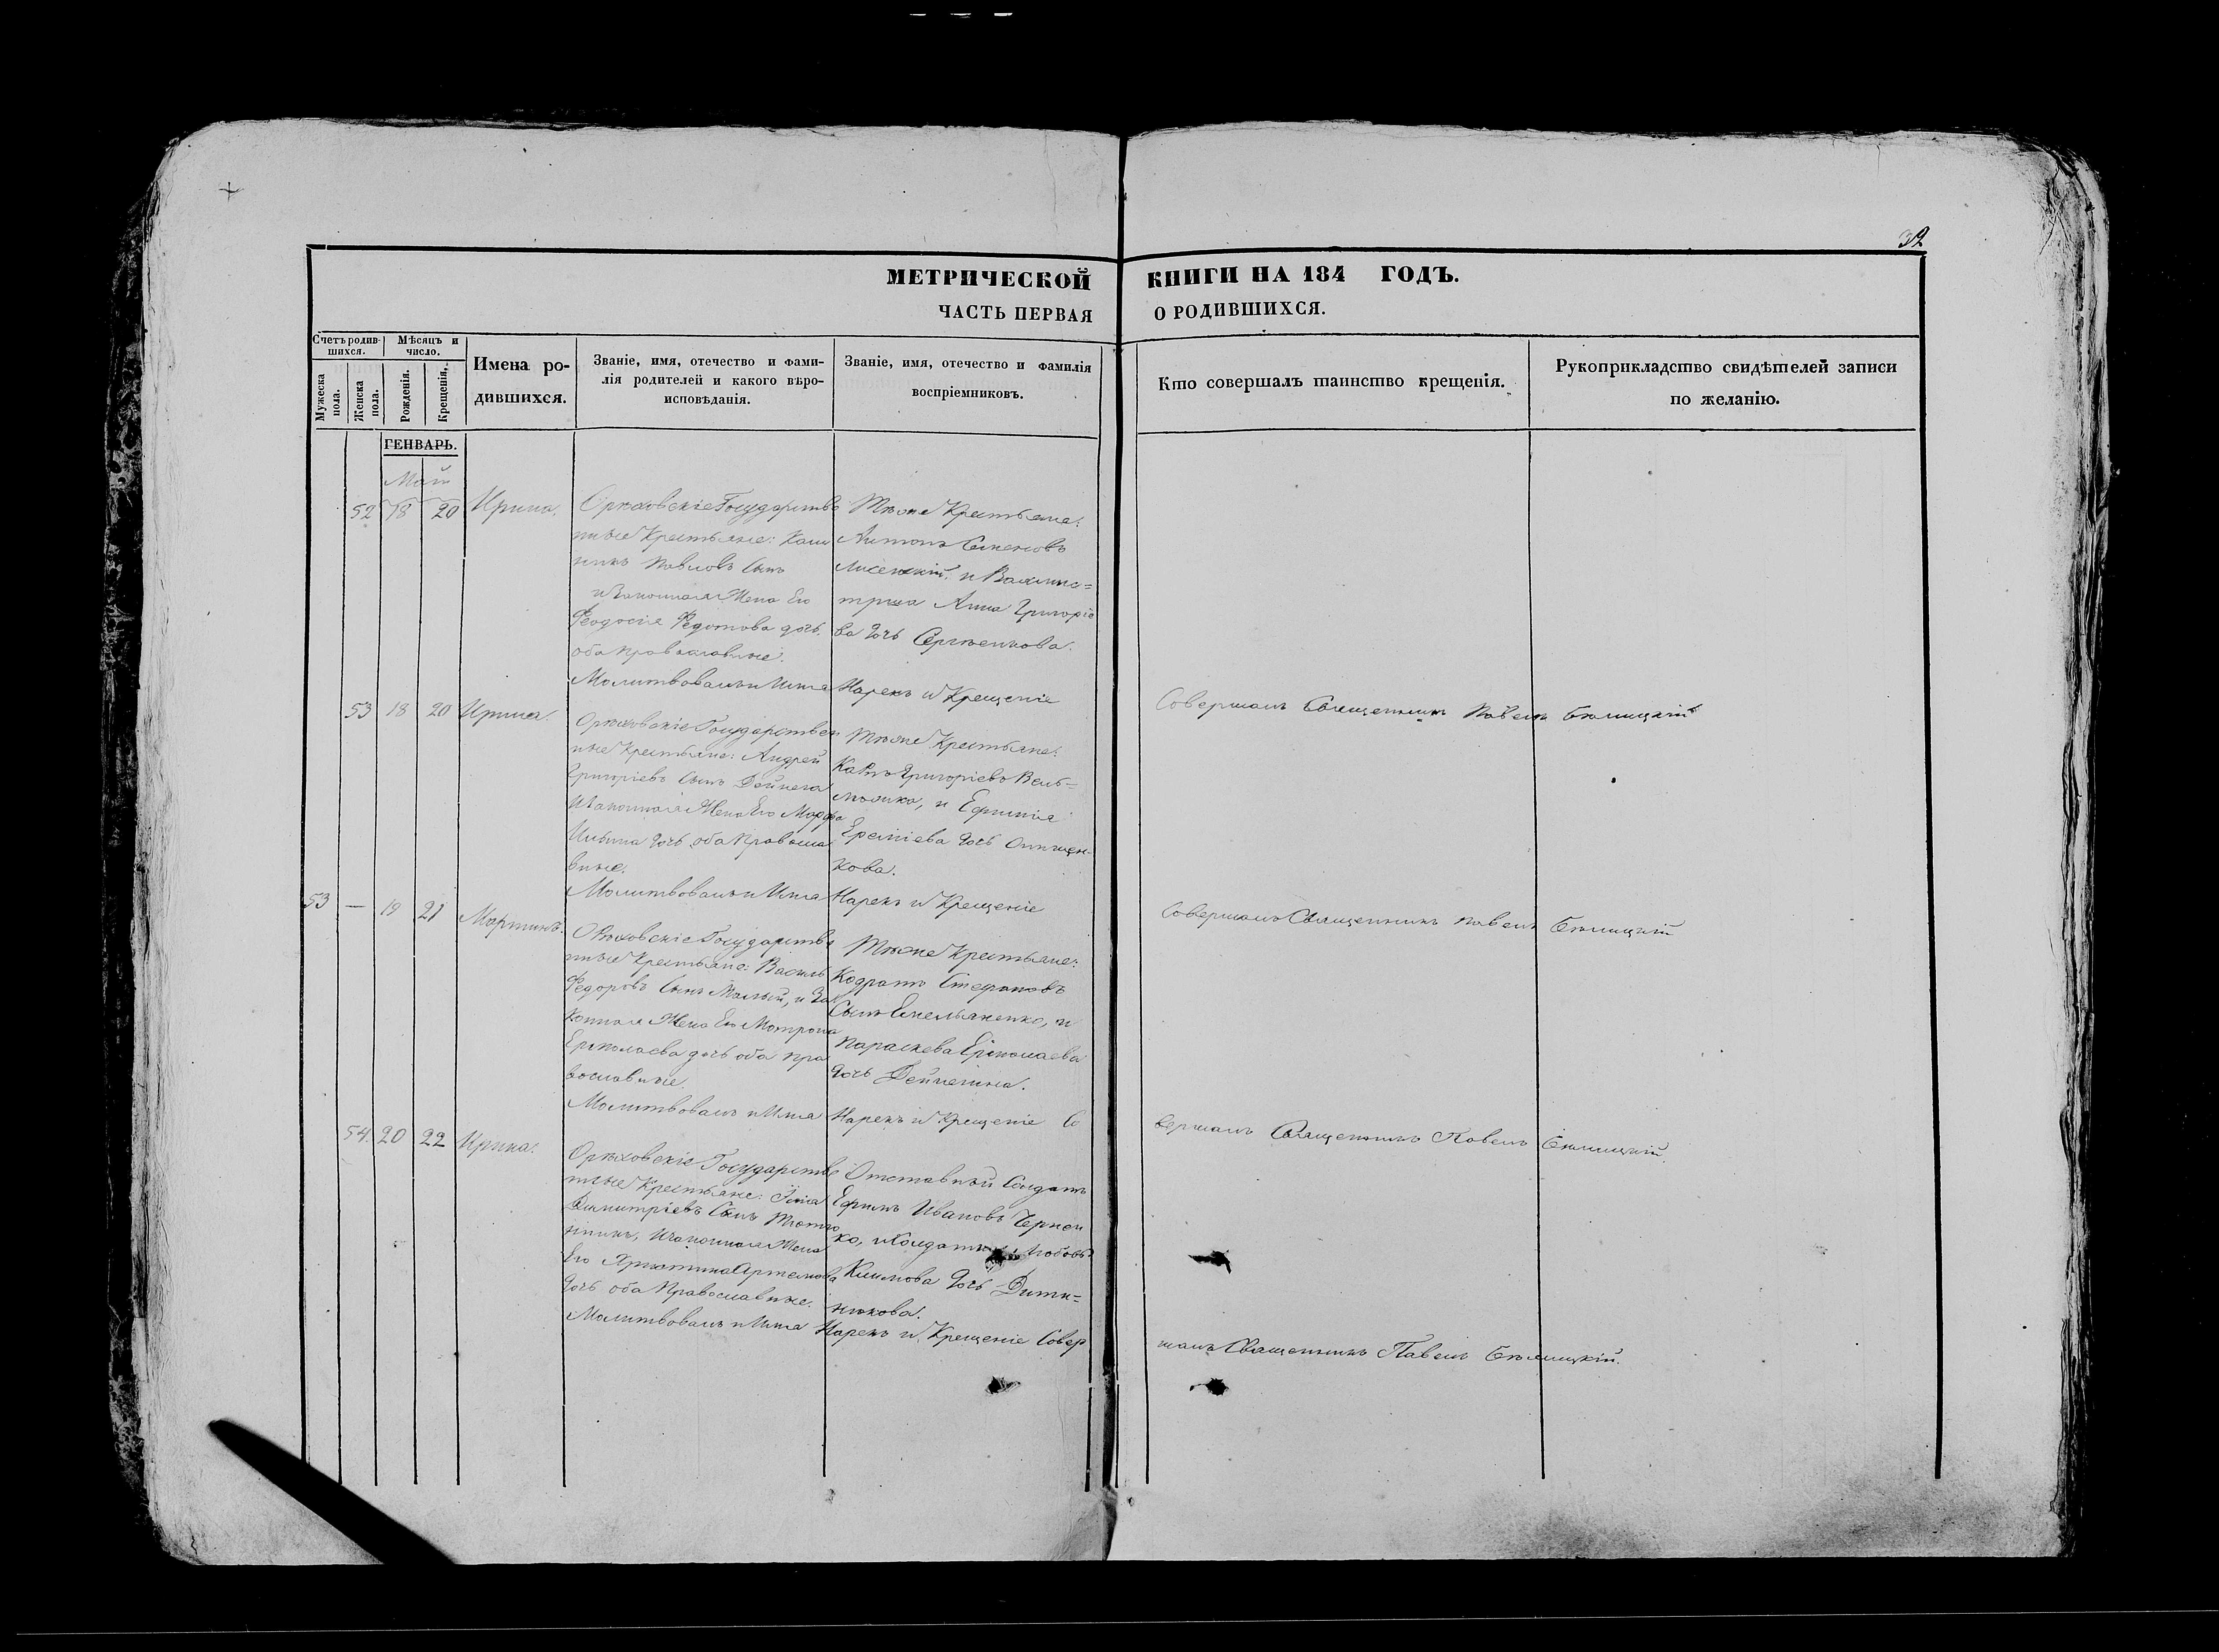 32
МЕТРИЧЕСКОЙ КНИГИ НА 184 ГОДЪ.
ЧАСТЬ ПЕРВАЯ О РОДИВШИХСЯ.
Счетъ родив-
шихся.
Мужеска пола.
Женска пола.
Мѣсяцъ и
число.
Рожденія.
Крещенія.
Имена ро-
дившихся.
Званіе, имя, отечество и фами-
лія родителей и какого вѣро-
исповѣданія.
Званіе, имя, отечество и фамилія
воспріемниковъ.
Кто совершалъ таинство крещенія.
Рукоприкладство свидѣтелей записи
по желанію.
ГЕНВАРЬ.
Май
52 18 20 Ирина.
Орѣховскіе Государстве
нные Крестьяне:
Павловъ Сынъ
Законная Жена Его
Феодосія Федотова дочь
оба православные.
Тѣже Крестьяне:
Антонъ Семеновъ
и Вахмис=
трша Анна Григоріе
ва дочь Сергѣенкова.
Молитвовалъ и Имя Нарекъ и Крещеніе
Совершалъ Священникъ Павелъ Бѣлицкій
53 18 20 Ирина.
Орѣховскіе Государствен
ные Крестьяне: Андрей
Григоріевъ Сынъ Дейнега
и Законная Жена Его Марфа
Ильина дочь оба Правосла
вные.
Тѣже Крестьяне:
Григоріевъ Вель=
можко, и Ефимія
дочь
кова.
Молитвовалъ и Имя Нарекъ и Крещеніе
Совершалъ Священникъ Павелъ Бѣлицкій
53 — 19 21 Мартинъ.
Орѣховскіе Государстве
нные Крестьяне: Василь
Федоровъ Сынъ Малый, и Зак
конная Жена Его Мотрона
Ермолаева дочь оба пра
вославные.
Тѣже Крестьяне:
Кодратъ Стефановъ
Сынъ Емельяненко, и
Параскева Ермолаева
дочь Дейнегина.
Молитвовалъ и Имя Нарекъ и Крещеніе Со
вершалъ Священникъ Павелъ Бѣлицкій.
54. 20 22 Ирина.
Орѣховскіе Государстве
нные Крестьяне:
Димитріевъ Сынъ
и Законная Жена
Его Артемова
дочь оба Православные.
Отставный Солдатъ
Ефимъ Ивановъ Чернен
ко, и Солдатка Любовь
Климова дочь
Молитвовалъ и Имя Нарекъ и Крещеніе Совер
шалъ Священникъ Павелъ Бѣлицкій.